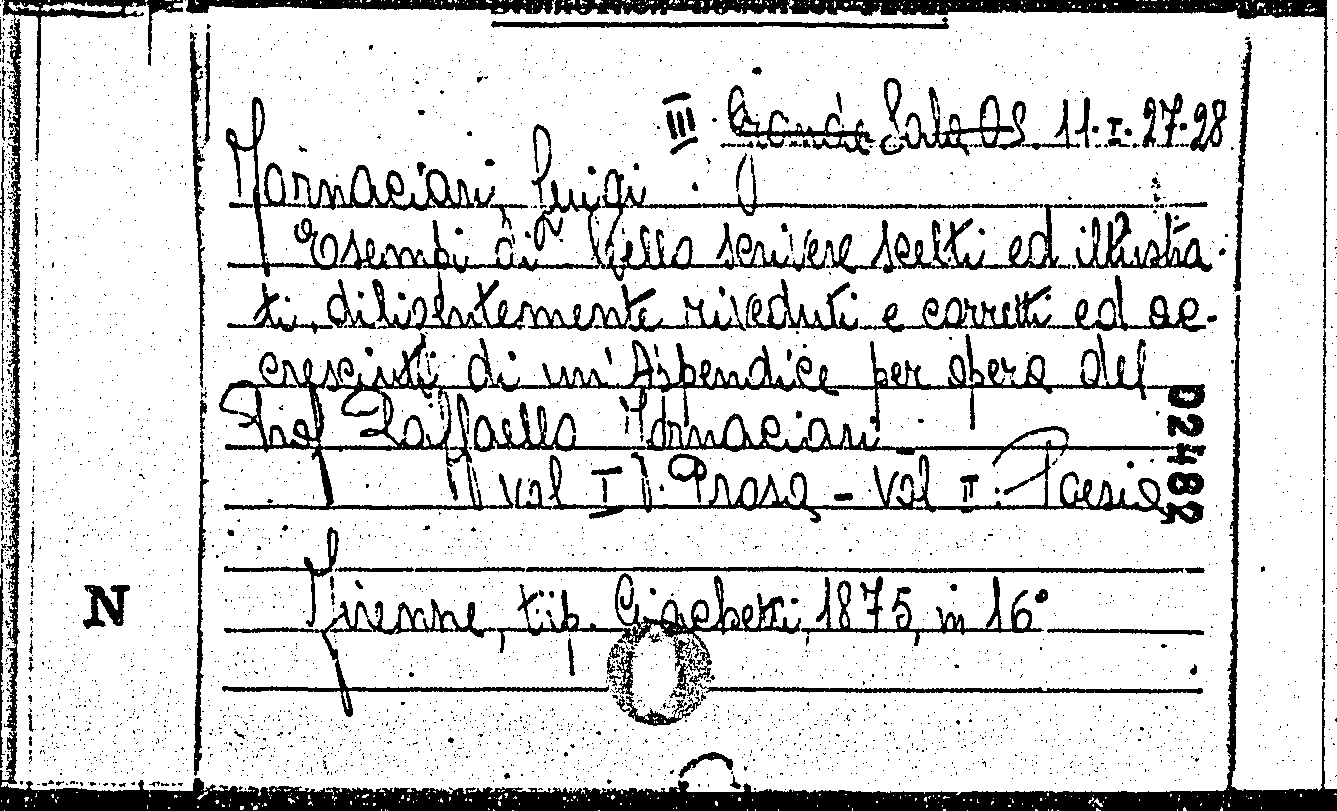 III Grande Sala OS. 11. I. 27-28
Fornaciari, Luigi
Esempi di bello scrivere scelti ed illustra-
ti, diligentemente riveduti e corretti ed ac-
cresciuti di un' Appendice per opera del
Prof Raffaello Fornaciari
vol I. Prosa - Vol II: Poesia
D2482
Firenze, tip. Giachetti, 1875, in 16°
N